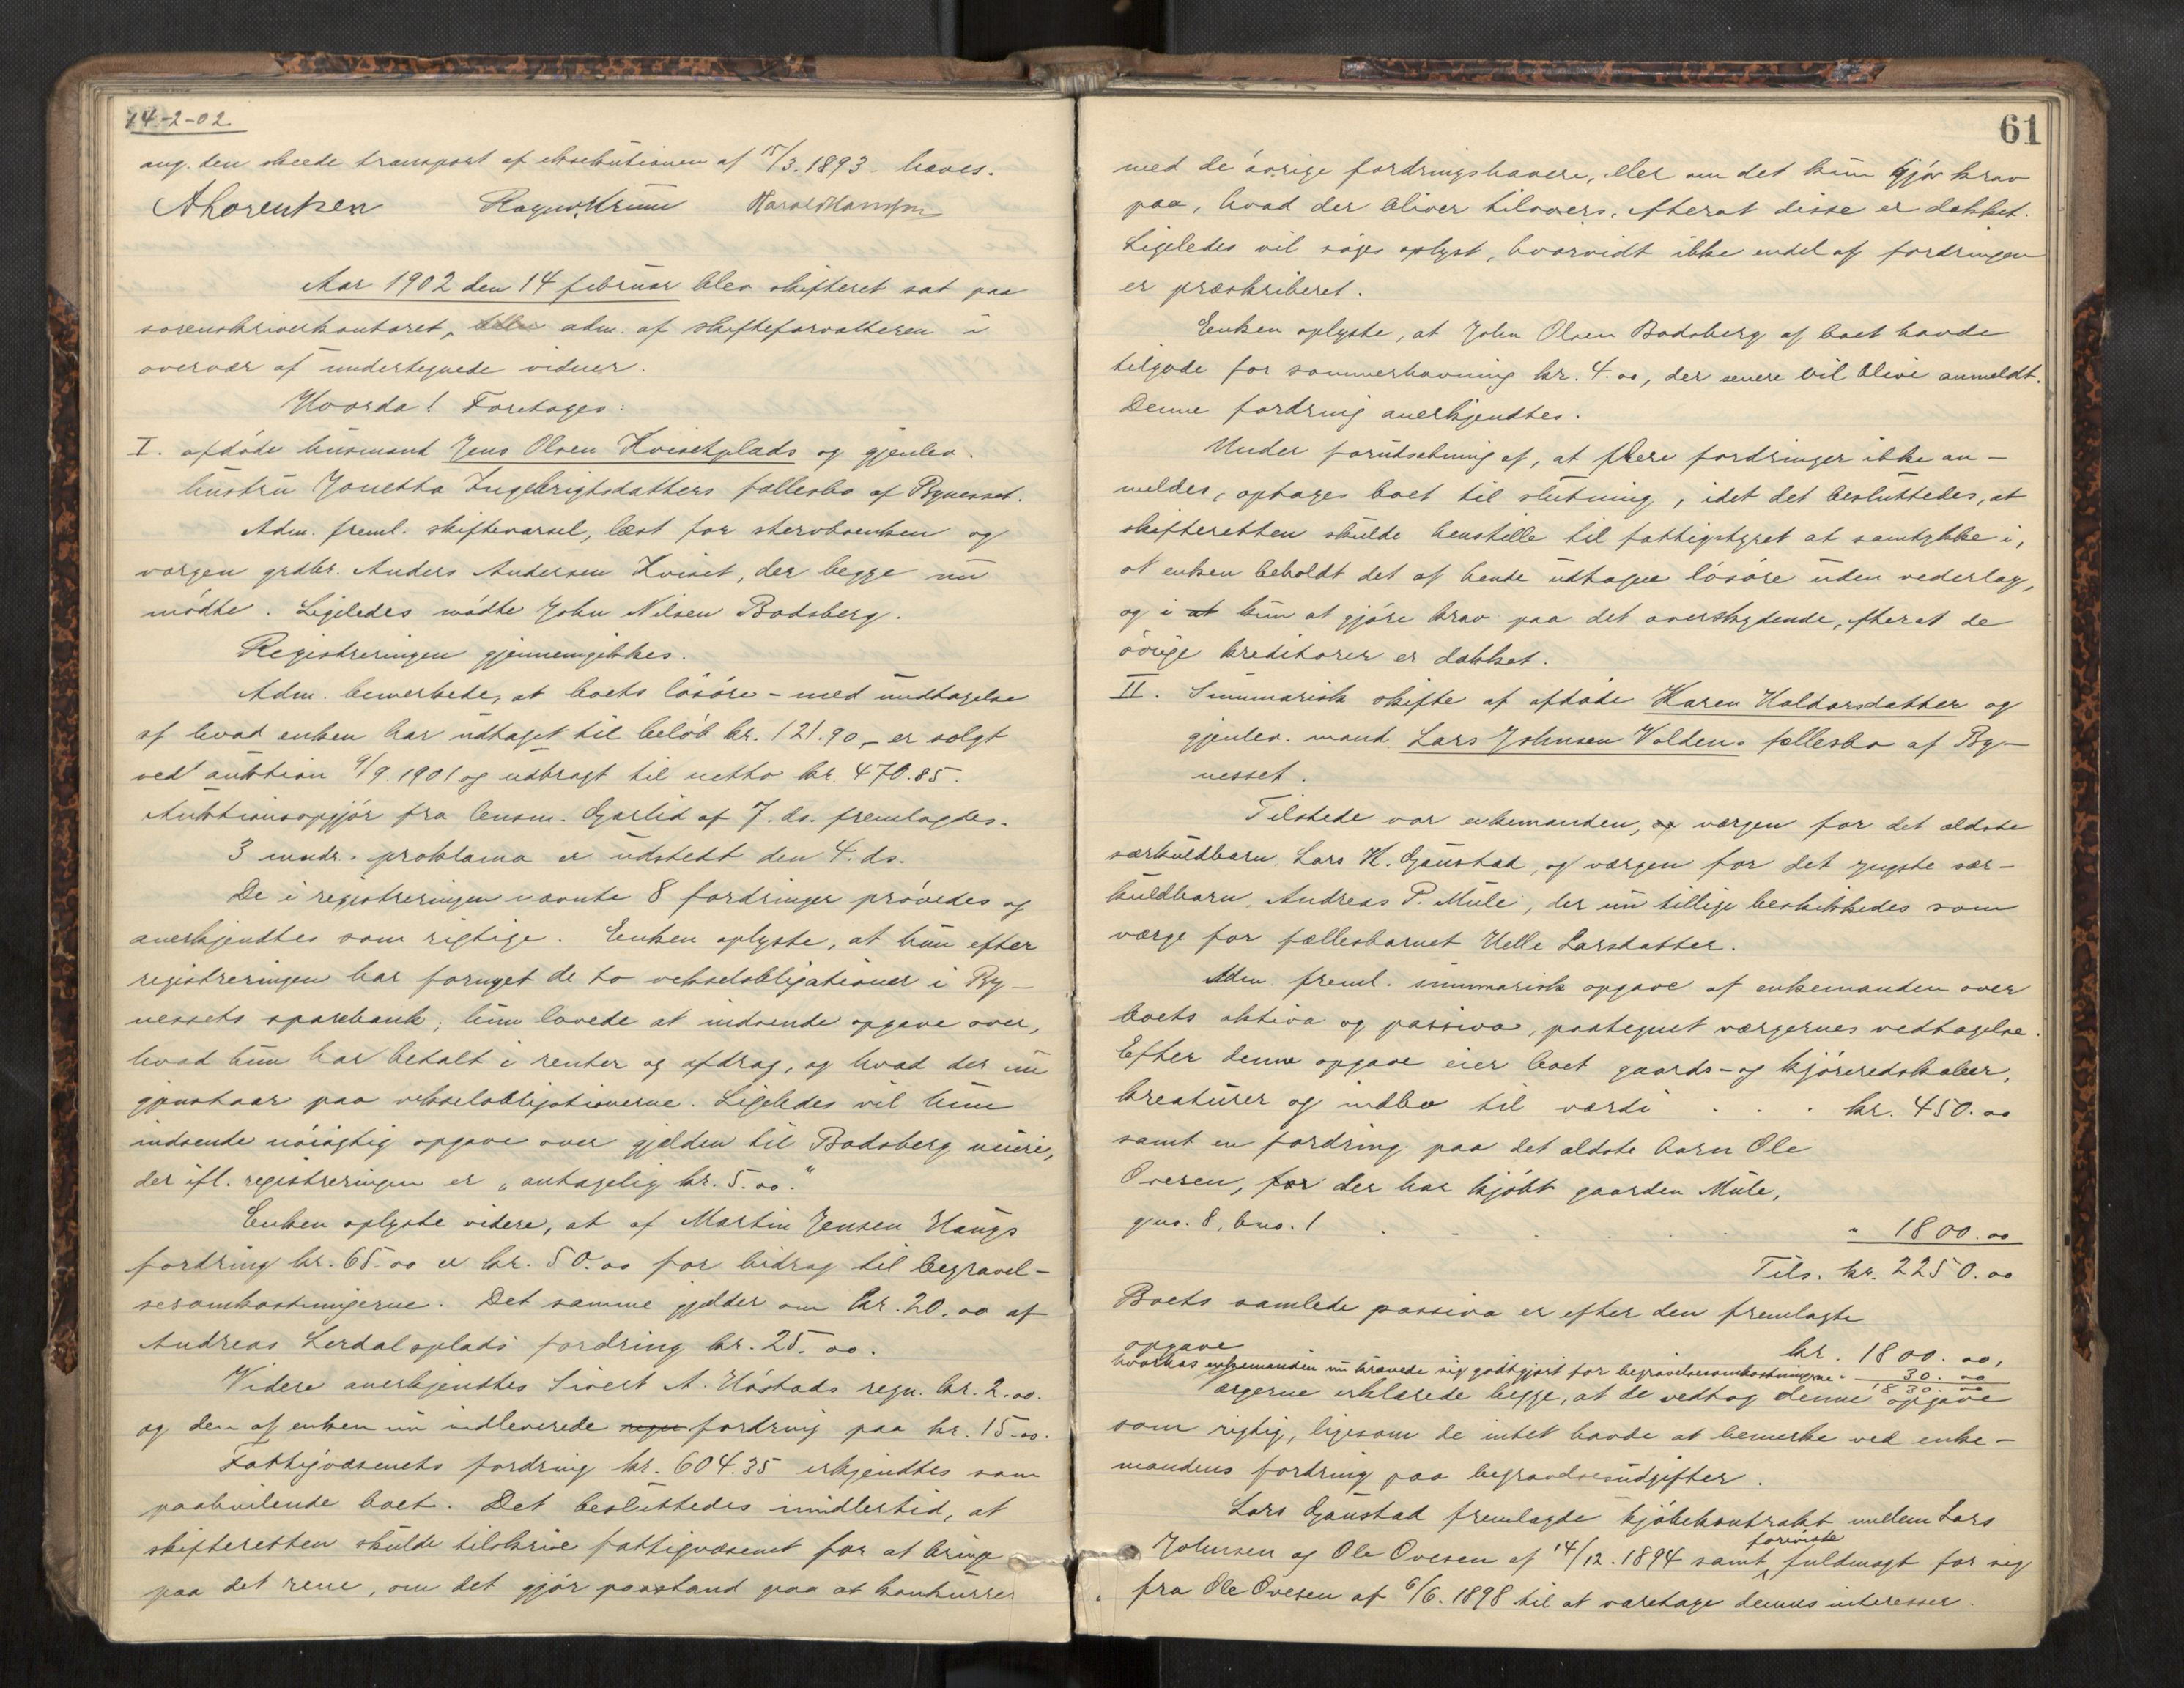 14-2-02
ang. den skeede transport af eksekutionen af 15/3.1893 haves.
A Lorentzen Ragnv. Krum Harald Hansen
Aar 1902 den 14 februar blev skifteret sat paa
sorenskriverkontoret, adm. af skifteforvalteren i
overvær af undertegnede vidner.
Hvorda! Foretages:
I. afdøde husmand Jens Olsen Kvisetplads og gjenlev.
hustru Jonetta Ingebrigtsdatters fællesbo af Bynesset.
Adm. freml. skiftevarsel, læst for stervboenken og
værgen grdbr. Anders Andersen Kviset, der begge nu
mødte. Ligeledes mødte John Nilsen Bodsberg.
Registreringen gjennemgikkes.
Adm. bemerkede, at boets løsøre - med undtagelse
af hvad enken har udtaget til beløb kr. 121.90, - er solgt
ved auktion 9/9.1901 og udbragt til netto kr. 470.85.
Auktionsopgjør fra lensm. Gjørlid af 7. ds. fremlagdes.
3 mndr. proklama er udstedt den 4. ds.
De i registreringen nævnte 8 fordringer prøvedes og
anerkjendtes som rigtige. Enken oplyste, at hun efter
registreringen har fornyet de to vekselobligationer i By-
nessets sparebank; hun lovede at indsende opgave over,
hvad hun har betalt i renter og afdrag, og hvad der nu
gjenstaar paa vekselobligationerne. Ligeledes vil hun
indsende nøiagtig opgave over gjelden til Bodsberg meieri,
der ifl. registreringen er „antagelig kr. 5.00."
Enken oplyste videre, at af Martin Jensen Haugs
fordring kr. 65.00 er kr. 50.00 for bidrag til begravel-
sesomkostningerne. Det samme gjelder om kr. 20.00 af
Andreas Lerdalsplads fordring kr. 25.00.
Videre anerkjendtes Sivert A. Høstads regn. kr. 2.00.
og den af enken nu indleverede regn fordring paa kr. 15.00.
Fattigvæsenets fordring kr. 604.35 erkjendtes som
paahvilende boet. Det besluttedes imidlertid, at
skifteretten skulde tilskrive fattigvæsenet for at bringe
paa det rene, om det gjør paastand paa at konkurrer
61
med de øvrige fordringshavere, eller om det kun gjør krav
paa, hvad der bliver tilovers, efterat disse er dækket.
Ligeledes vil søges oplyst, hvorvidt ikke endel af fordringen
er præskriberet.
Enken oplyste, at John Olsen Bodsberg af boet havde
tilgode for sommerhavning kr. 4.00, der senere vil blive anmeldt.
Denne fordring anerkjendtes.
Under forudsetning af, at flere fordringer ikke an-
meldes, optages boet til slutning, idet det besluttedes, at
skifteretten skulde henstille til fattigstyret at samtykke i,
at enken beholdt det af hende udtagne løsøre uden vederlag,
og i at kun at gjøre krav paa det overskydende, efterat de
øvrige kreditorer er dækket.
II. Summarisk skifte af afdøde Karen Haldorsdatter og
gjenlev. mand Lars Johnsen Voldens fællesbo af By-
nesset.
Tilstede var enkemanden, og værgen for det ældste
særkuldbarn, Lars H. Gaustad, og værgen for det yngste sær-
kuldbarn, Andreas P. Mule, der nu tillige beskikkedes som
værge for fællesbarnet Helle Larsdatter.
Adm. freml. summarisk opgave af enkemanden over
boets aktiva og passiva, paategnet værgernes vedtagelse.
Efter denne opgave eier boet gaards- og kjøreredskaber,
kreaturer og indbo til værdi . . . kr. 450.00
samt en fordring paa det ældste barn Ole
Ovesen, for der har kjøbt gaarden Mule,
gno. 8, bno. 1 . . . . . . " 1800.00
Tils. kr. 2250.00
Boets samlede passiva er efter den fremlagte
opgave kr. 1800.00,
hvorhos enkemanden nu krævede sig godtgjort for begravelsesomkostningerne " 30.00
1830.00
ærgerne erklærede begge, at de vedtog denne opgave
som rigtig, ligesom de intet havde at bemerke ved enke-
mandens fordring paa begravelsesudgifter.
Lars Gaustad fremlagde kjøbekontrakt mellem Lars
Johnsen og Ole Ovesen af 14/12.1894 samt foreviste fuldmagt for sig
fra Ole Ovesen af 6/6.1898 til at varetage dennes interesser.